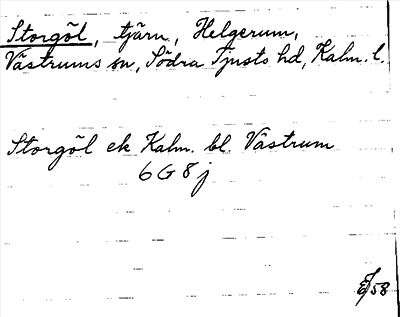 Storgöl, tjärn, Helgerum,
Västrums sn, Södra Tjusts hd, Kalm. l.
Storgöl ek Kalm. bl. Västrum
6 G 8 j
E/58